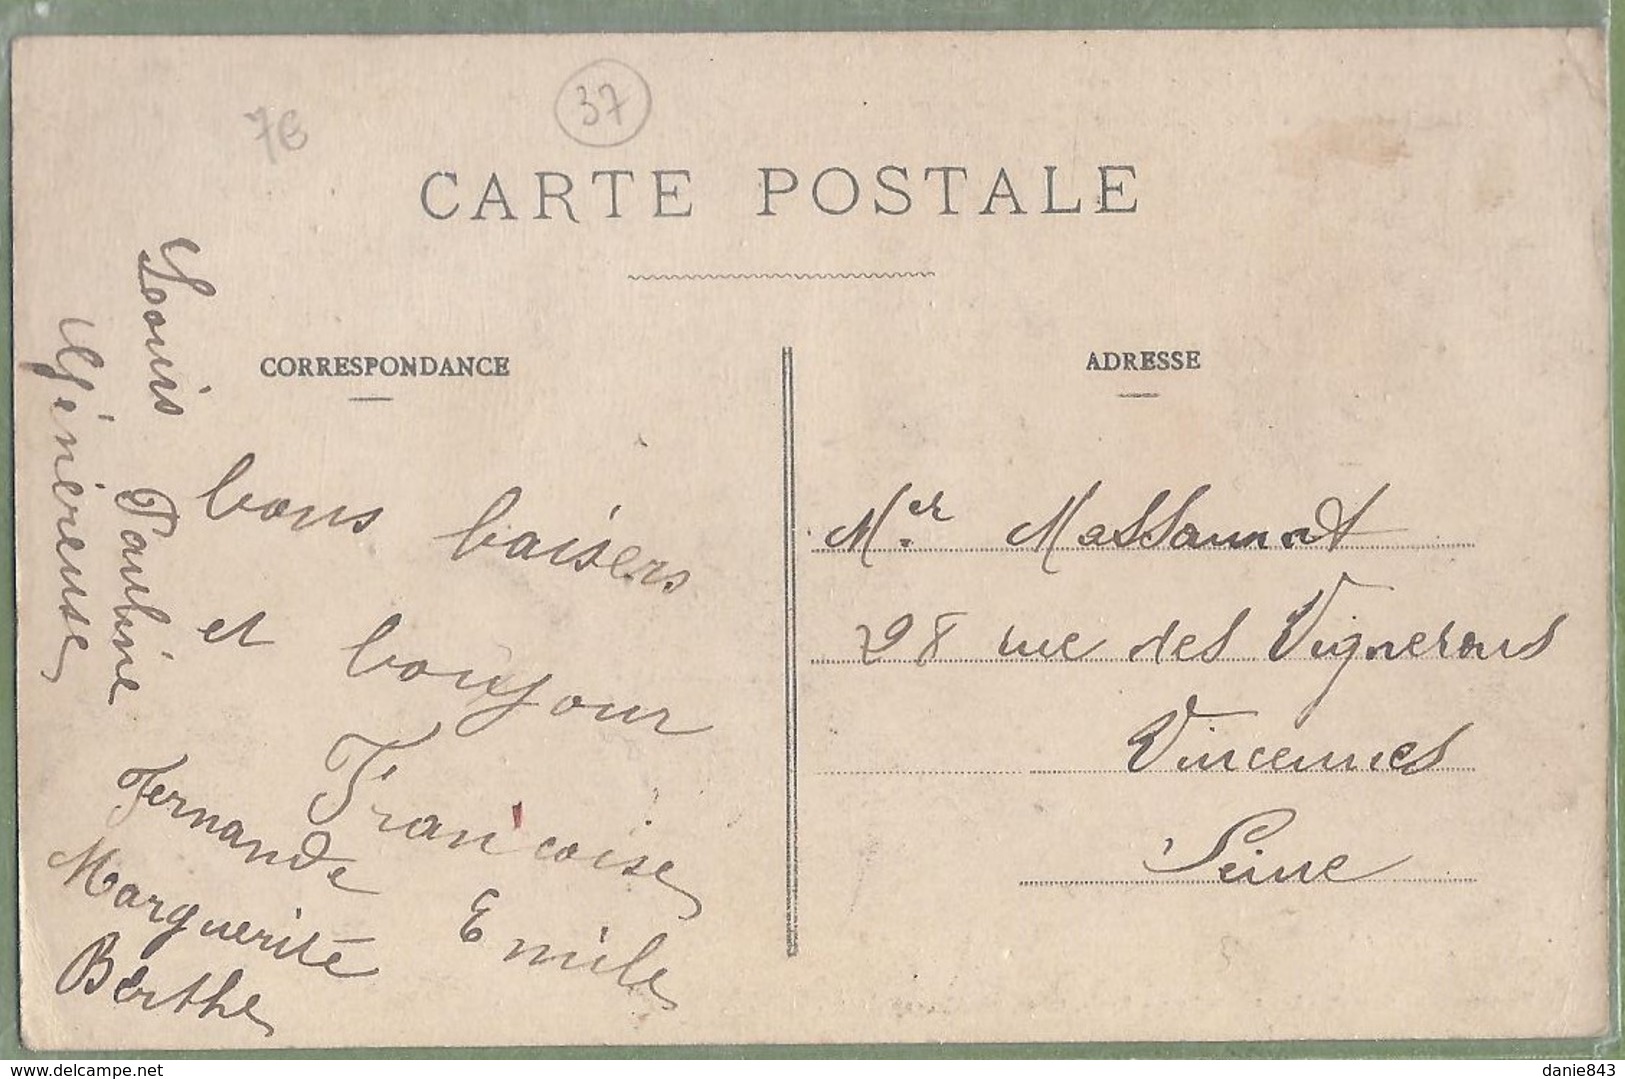 7€
37
CARTE POSTALE
CORRESPONDANCE
bons baisers
et bonjour
Françoise
Emile
Fernande
Marguerite
Berthe
Louis Pauline
Généreuse
ADRESSE
Mer
28 rue des Vignerons
Vincennes
Seine
www.delcampe.net
danie843